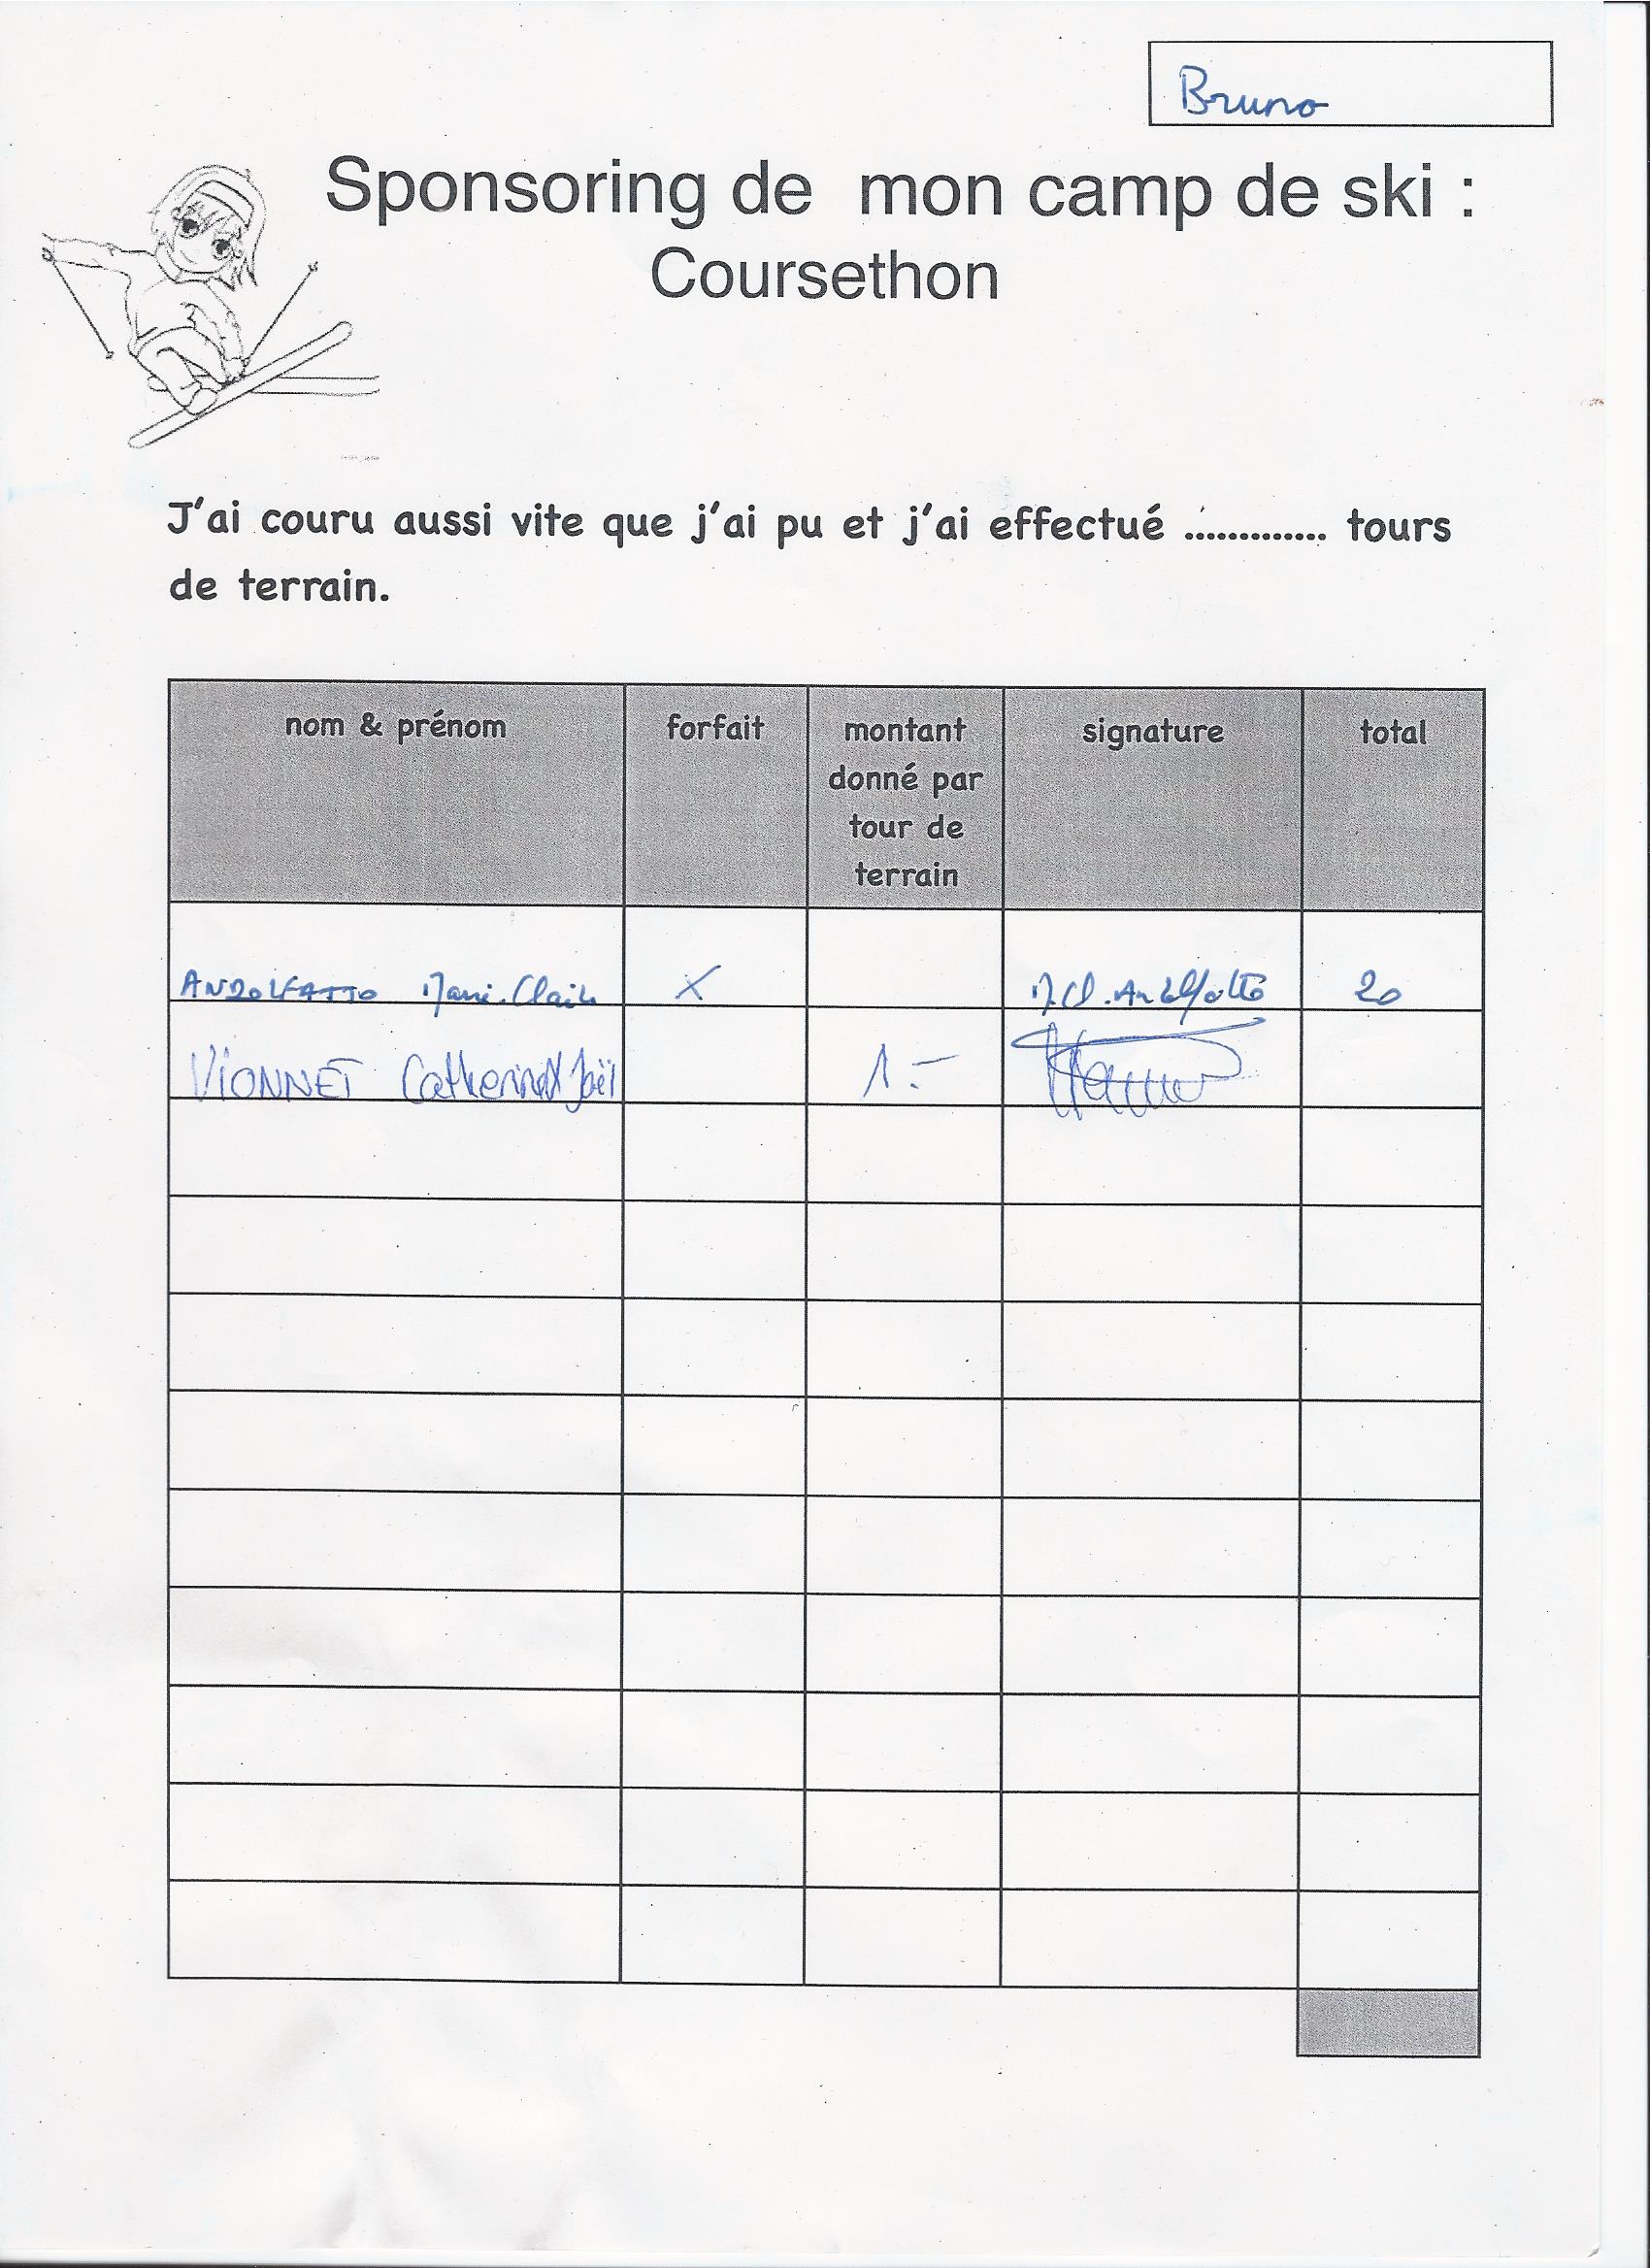 Bruno
Sponsoring de mon camp de ski :
Coursethon
J'ai couru aussi vite que j'ai pu et j'ai effectué ............. tours
de terrain.
nom & prénom forfait montant donné par tour de terrain signature total
ANDOLFATTO Marie-Claire X M.Cl. Andolfatto 20
VIONNET Catherine & Joël 1.-